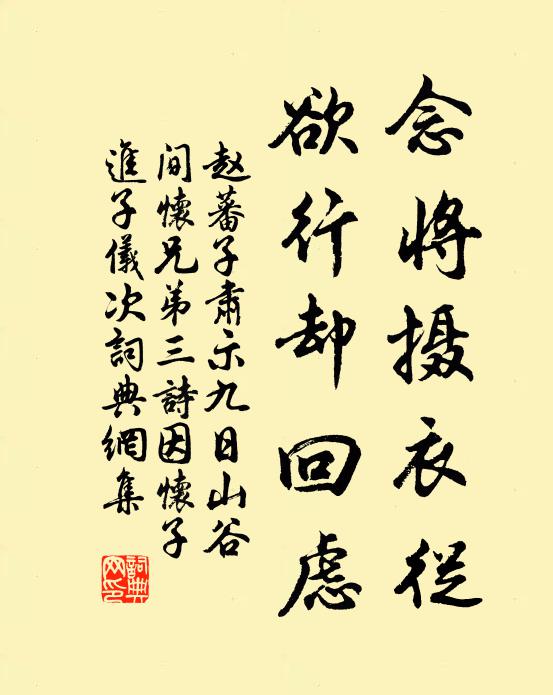 念将摄衣從
欲行却回慮
赵蕃子肅示九日山谷
间懷兄弟三詩因懷子
進子儀次詞典網集
詞典网印